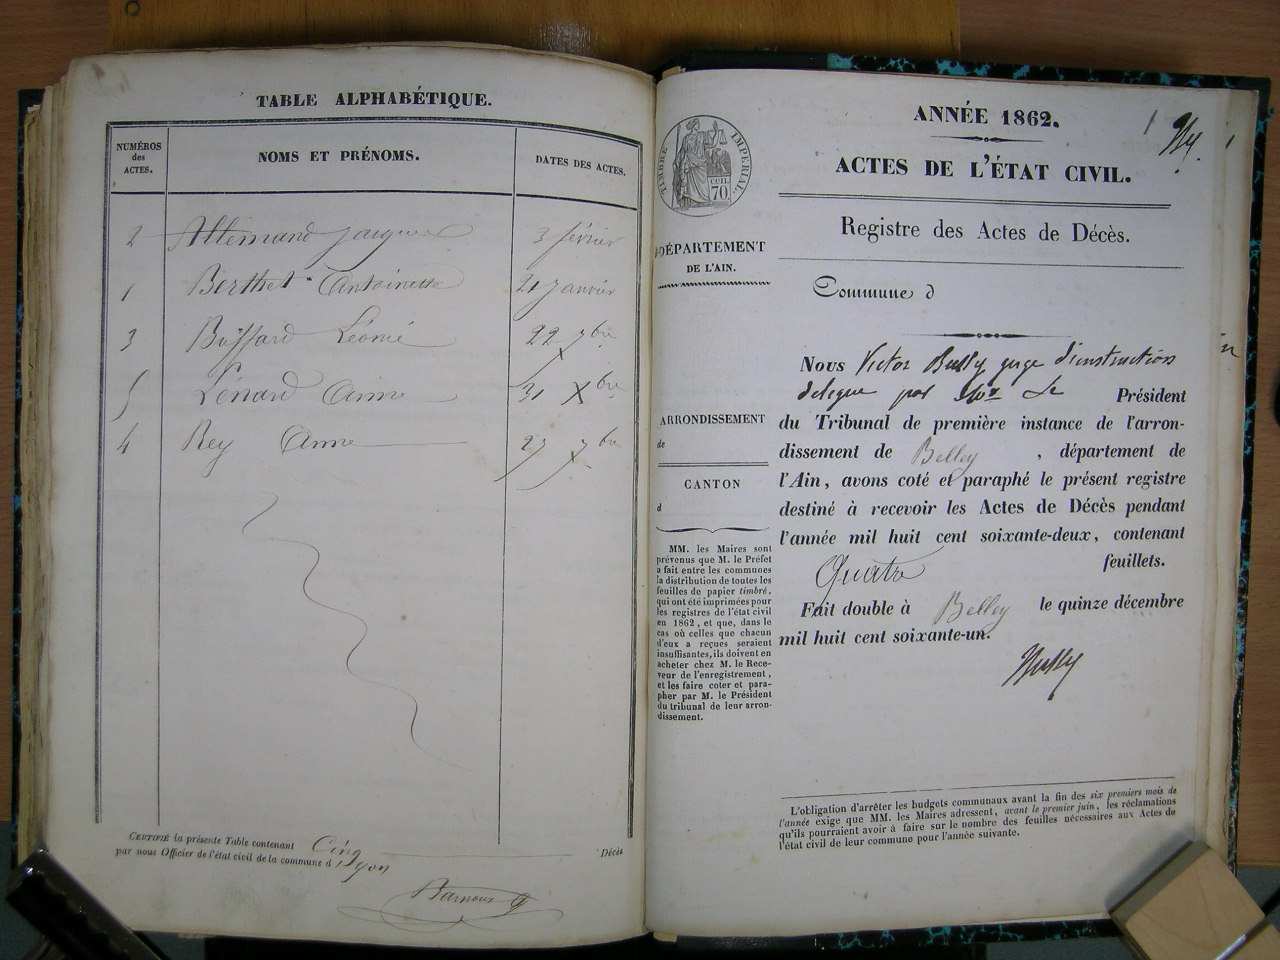 TABLE ALPHABÉTIQUE.
NUMÉROS
des
ACTES.
NOMS ET PRÉNOMS.
DATES DES ACTES.
2 Allemand Jacques 3 février
1 Berthet Antoinette 21 janvier
3 Buffard Léonie 22 7bre
5 Lénard Aimé 31 Xbre
4 Rey Anne 27 7bre
CERTIFIÉ la présente Table contenant Cinq Décès
par nous Officier de l'état civil de la commune d'Iyon
ANNÉE 1862.
ACTES DE L'ÉTAT CIVIL.
TIMBRE IMPÉRIAL.
CEN. 70.
Registre des Actes de Décès.
DÉPARTEMENT
DE L'AIN.
Commune d
ARRONDISSEMENT
de
CANTON
d
MM. les Maires sont
prévenus que M. le Préfet
a fait entre les communes
la distribution de toutes les
feuilles de papier timbré,
qui ont été imprimées pour
les registres de l'état civil
en 1862, et que, dans le
cas où celles que chacun
d'eux a reçues seraient
insuffisantes, ils doivent en
acheter chez M. le Rece-
veur de l'enregistrement,
et les faire coter et para-
pher par M. le Président
du tribunal de leur arron-
dissement.
Nous Victor Bully juge d'instruction
délégué par Mr Le Président
du Tribunal de première instance de l'arron-
dissement de Belley, département de
l'Ain, avons coté et paraphé le présent registre
destiné à recevoir les Actes de Décès pendant
l'année mil huit cent soixante-deux, contenant
Quatre feuillets.
Fait double à Belley le quinze décembre
mil huit cent soixante-un.
L'obligation d'arrêter les budgets communaux avant la fin des six premiers mois de
l'année exige que MM. les Maires adressent, avant le premier juin, les réclamations
qu'ils pourraient avoir à faire sur le nombre des feuilles nécessaires aux Actes de
l'état civil de leur commune pour l'année suivante.